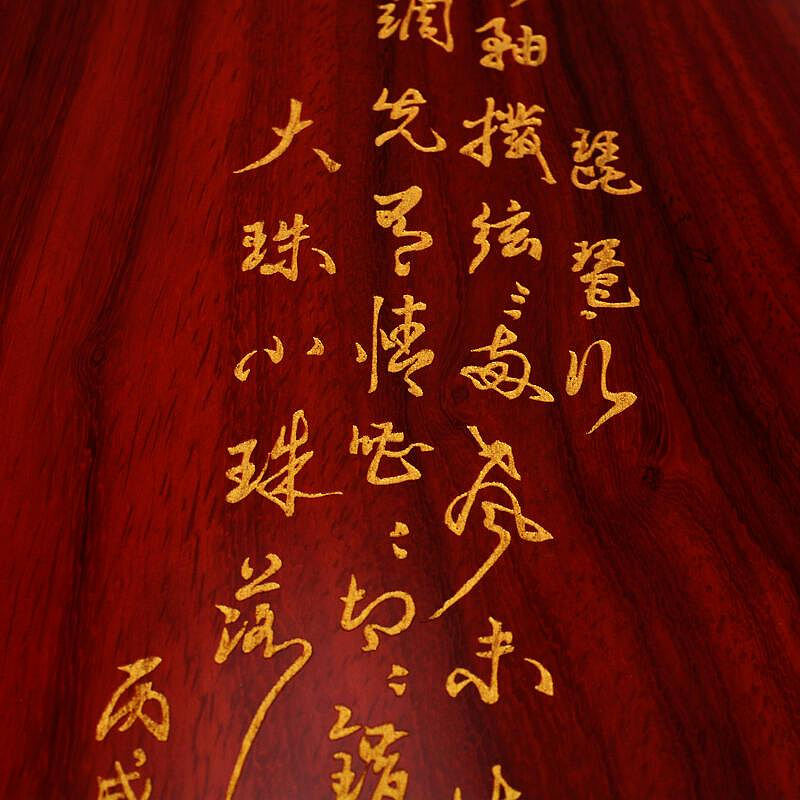 琵琶行
軸撥弦三兩聲未
調先有情嘈〻切〻錯
大珠小珠落
丙戌